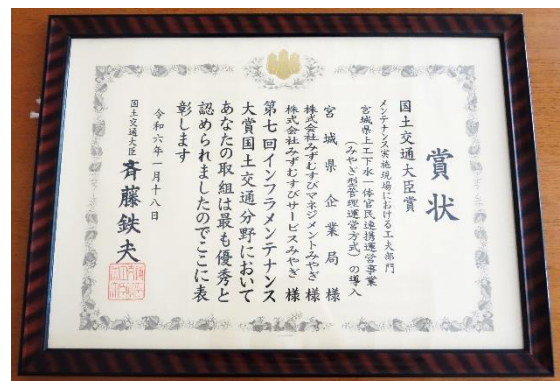 賞状
国土交通大臣賞
メンテナンス実施現場における工夫部門
宮城県上工下水一体官民連携運営事業
(みやぎ型管理運営方式)の導入
宮城県企業局 様
株式会社みずむすびマネジメントみやぎ 様
株式会社みずむすびサービスみやぎ 様
第七回インフラメンテナンス
大賞国土交通分野において
あなたの取組は最も優秀と
認められましたのでここに表
彰します
令和六年一月十八日
国土交通大臣 斉藤鉄夫